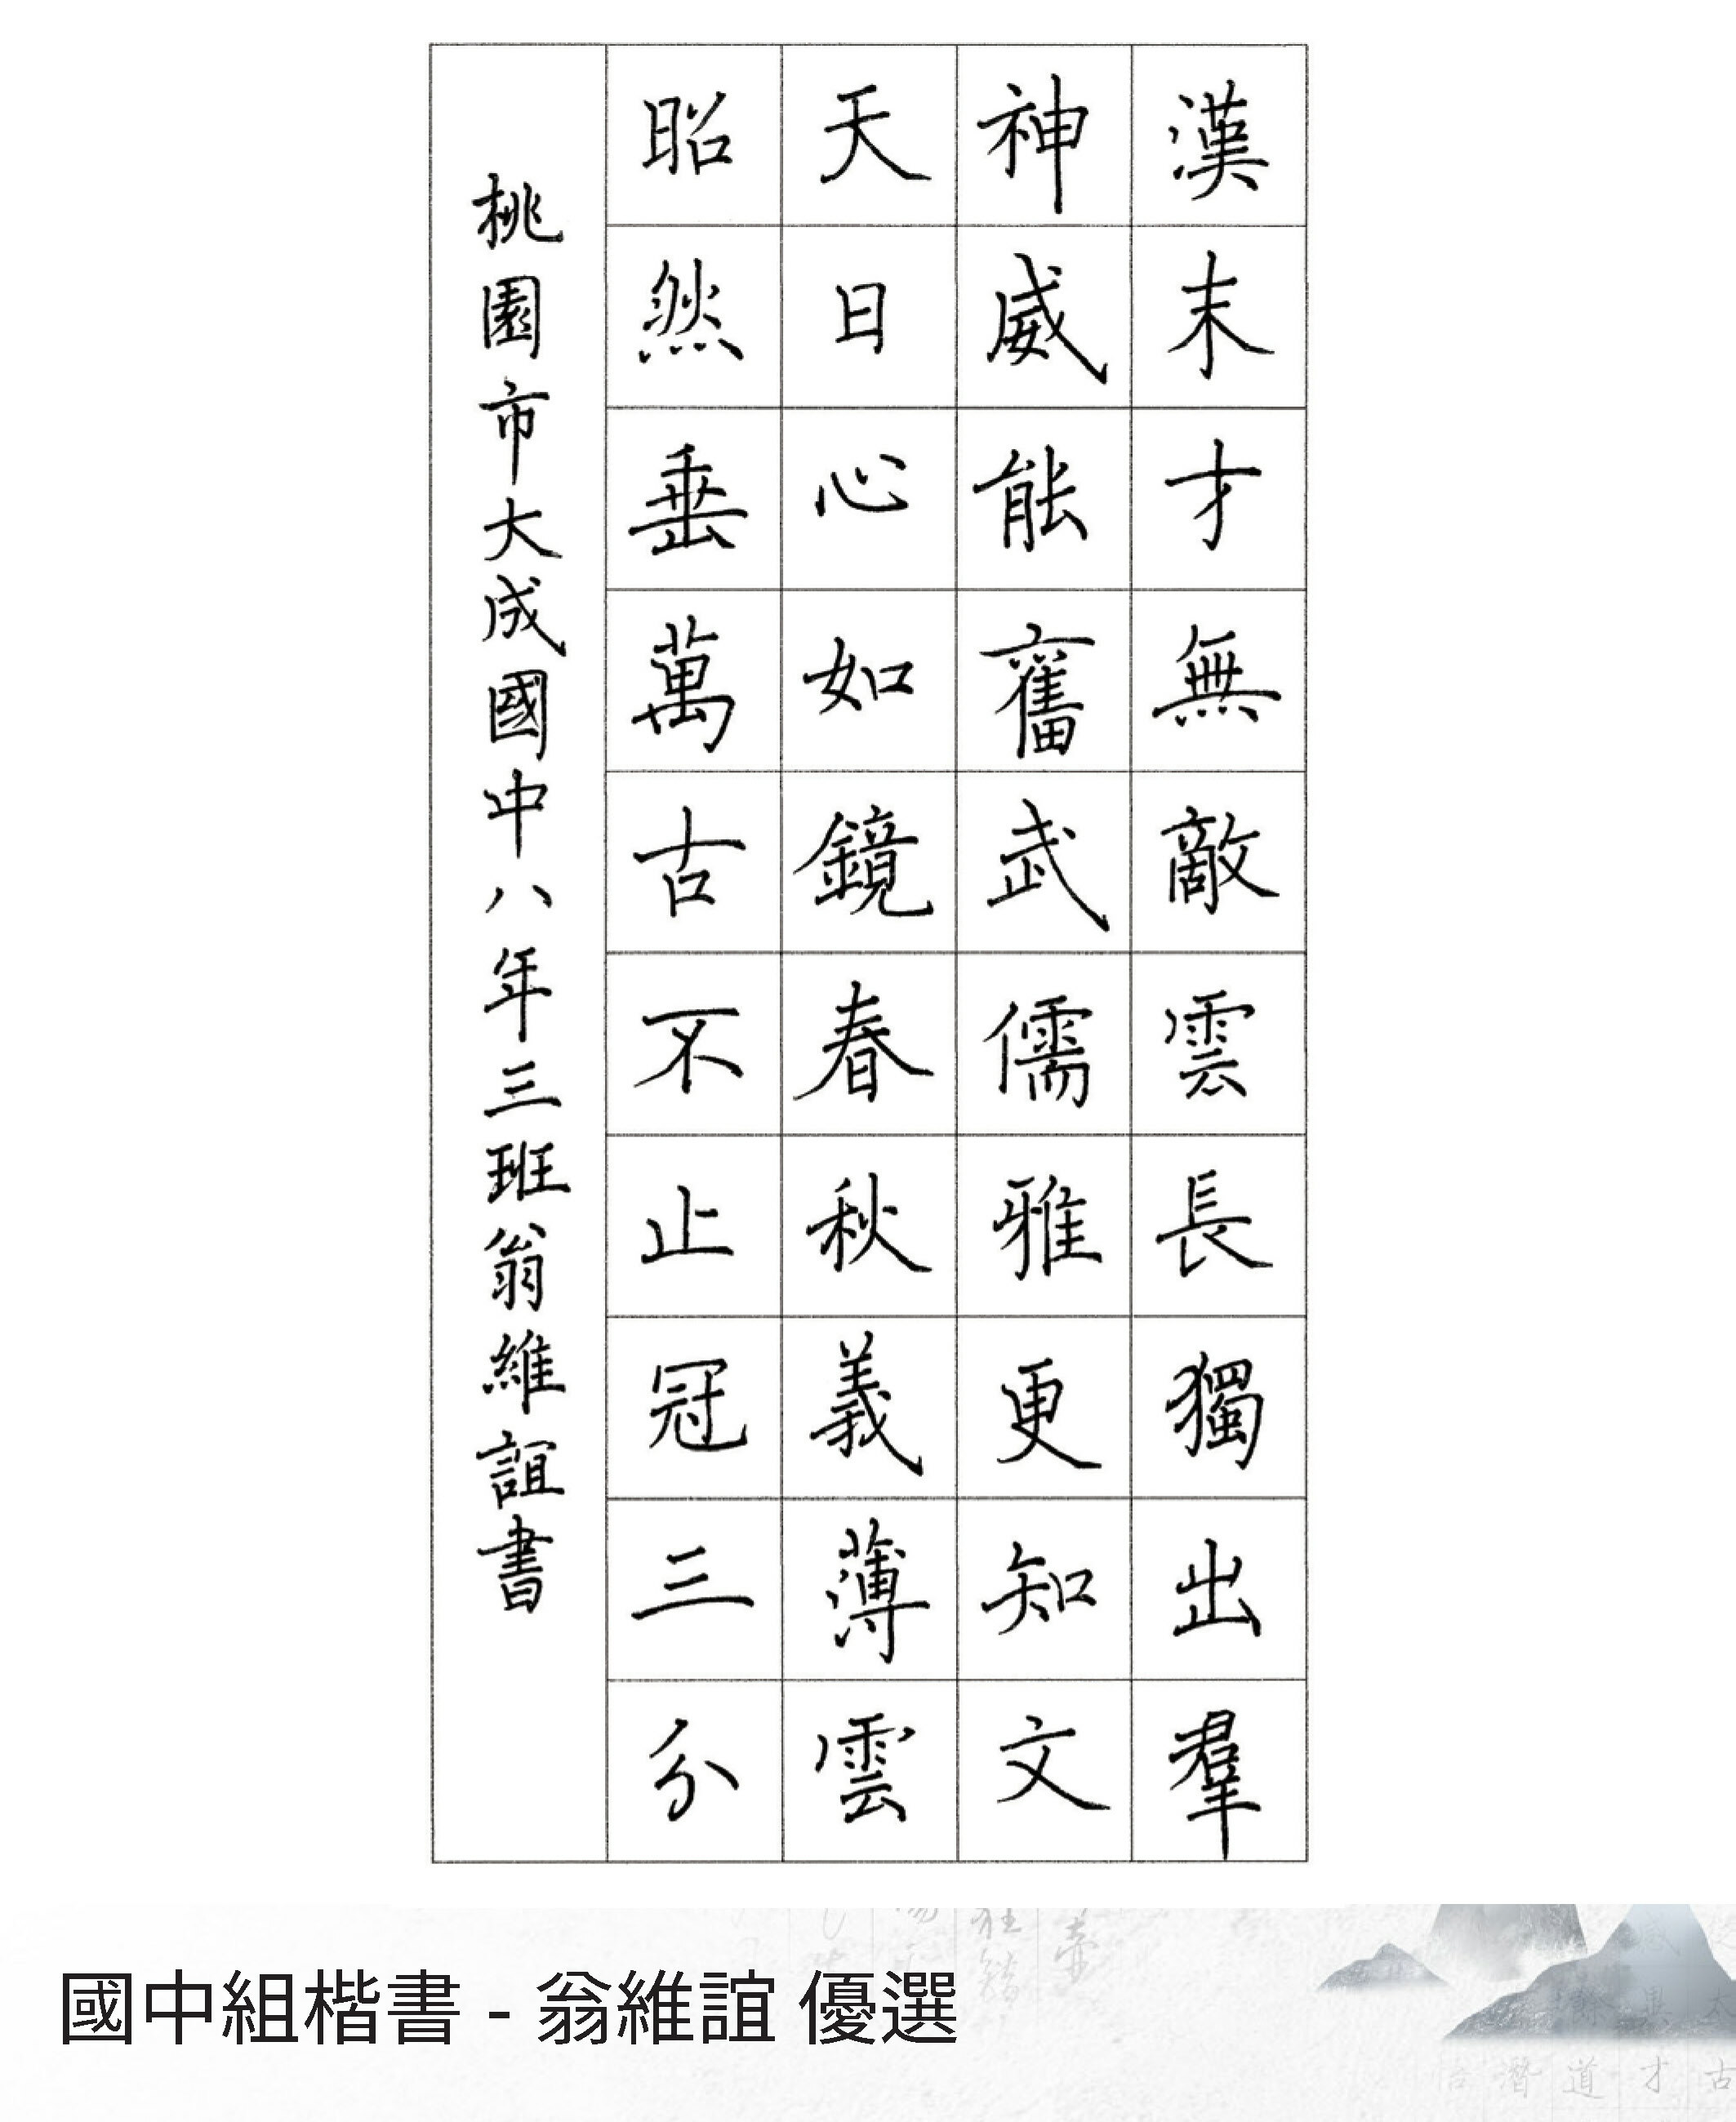 漢末才無敵雲長獨出羣
神威能奮武儒雅更知文
天日心如鏡春秋義薄雲
昭然垂萬古不止冠三分
桃園市大成國中八年三班翁維誼書
國中組楷書 - 翁維誼 優選